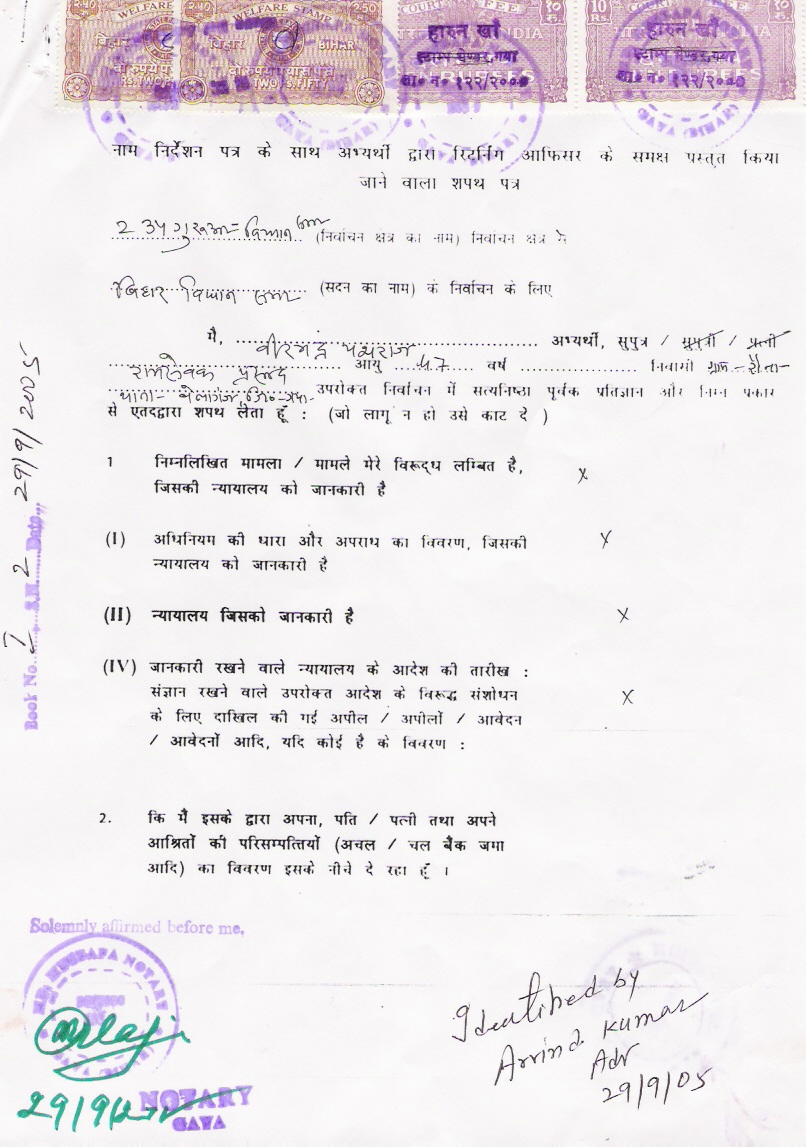 WELFARE
WELFARE STAMP
2.50
COURT FEE
१० रु.
10 Rs.
COURT FEE
१० रु.
बिहार
बिहार
BIHAR
INDIA
TWO FIFTY
हारुन खाँ
स्टाम्प भेण्डर, गया
ला० न० १२२/२०००
हारुन खाँ
स्टाम्प भेण्डर, गया
ला० न० १२२/२०००
GAYA (BIHAR)
GAYA (BIHAR)
नाम निर्देशन पत्र के साथ अभ्यर्थी द्वारा रिटर्निंग आफिसर के समक्ष प्रस्तुत किया
जाने वाला शपथ पत्र
(निर्वाचन क्षेत्र का नाम) निर्वाचन क्षेत्र से
बिहार विधान सभा (सदन का नाम) के निर्वाचन के लिए
मैं, अभ्यर्थी, सुपुत्र / सुपुत्री / पत्नी
प्रसाद आयु 47 वर्ष निवासी ग्राम-
थाना- बेलागंज, जि०-गया- उपरोक्त निर्वाचन में सत्यनिष्ठा पूर्वक प्रतिज्ञान और निम्न प्रकार
से एतदद्वारा शपथ लेता हूँ : (जो लागू न हो उसे काट दे )
1 निम्नलिखित मामला / मामले मेरे विरूद्ध लम्बित है, x
जिसकी न्यायालय को जानकारी है
(I) अधिनियम की धारा और अपराध का विवरण, जिसकी x
न्यायालय को जानकारी है
(II) न्यायालय जिसको जानकारी है x
(IV) जानकारी रखने वाले न्यायालय के आदेश की तारीख :
संज्ञान रखने वाले उपरोक्त आदेश के विरूद्ध संशोधन x
के लिए दाखिल की गई अपील / अपीलों / आवेदन
/ आवेदनों आदि, यदि कोई है के विवरण :
2. कि मैं इसके द्वारा अपना, पति / पत्नी तथा अपने
आश्रितों की परिसम्पत्तियों (अचल / चल बैंक जमा
आदि) का विवरण इसके नीचे दे रहा हूँ ।
Book No. I S.N. 2 Date 29/9/2005
Solemnly affirmed before me,
MUSTAFA NOTARY
29/9/
NOTARY
GAYA
Identified by
Arvind Kumar
Adv
29/9/05